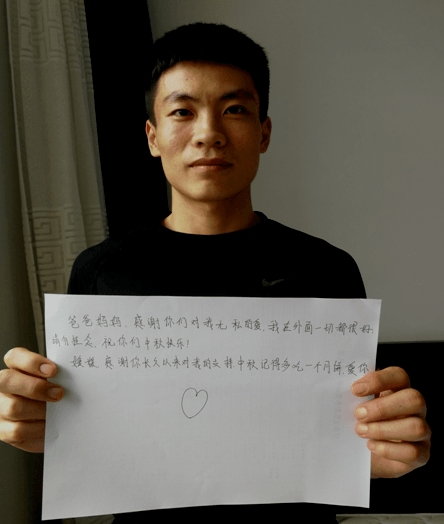 爸爸妈妈、感谢你们对我无私的爱,我在外面一切都很好
请勿挂念,祝你们中秋快乐!
感谢你长久以来对我的支持,中秋记得多吃一个月饼,爱你